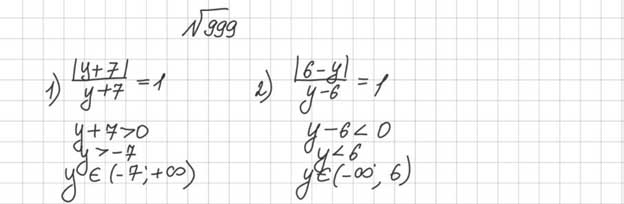 №999
1) |y+7|/y+7 = 1
y+7>0
y>-7
y∈(-7;+∞)
2) |6-y|/y-6 = 1
y-6<0
y<6
y∈(-∞; 6)